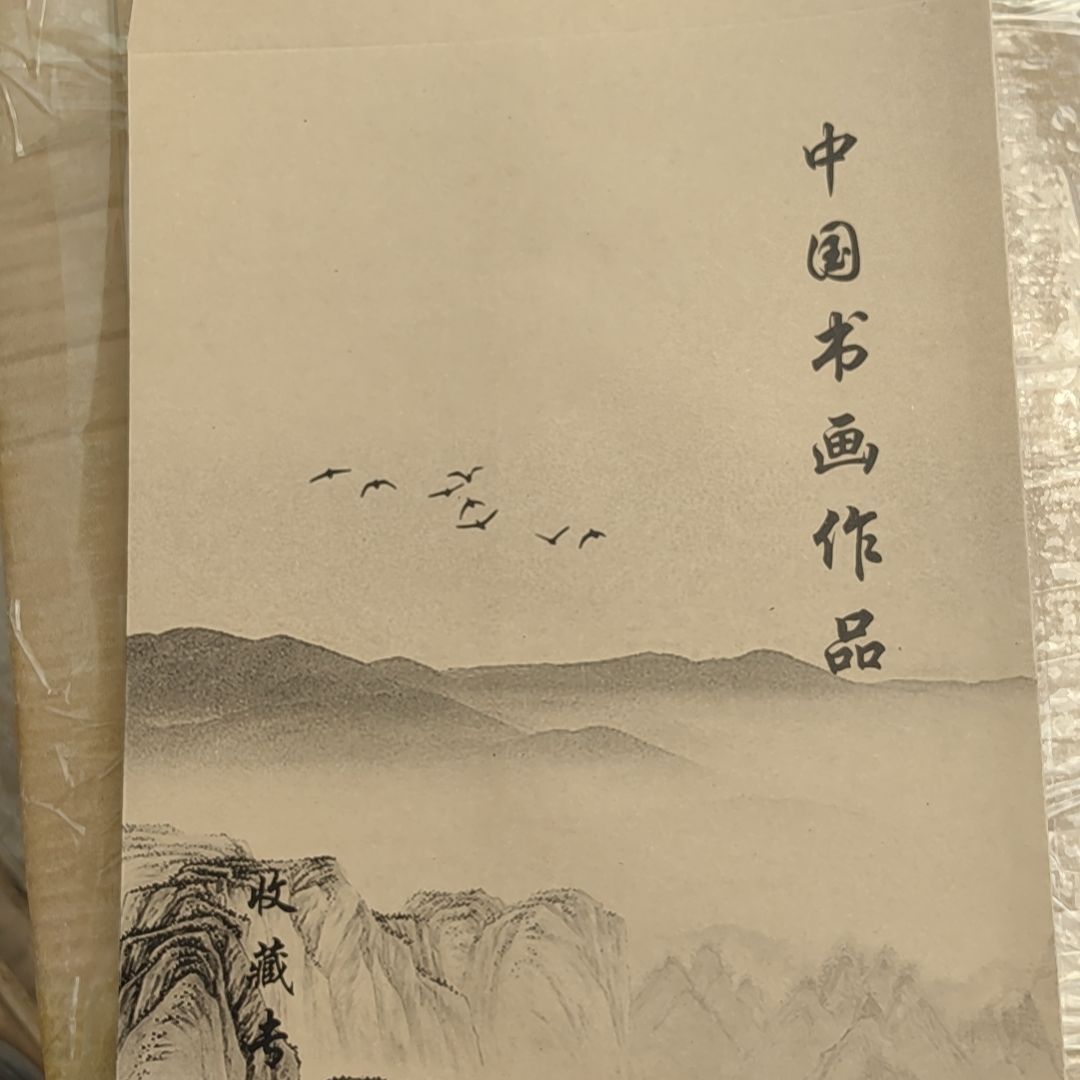 中国书画作品
收藏专